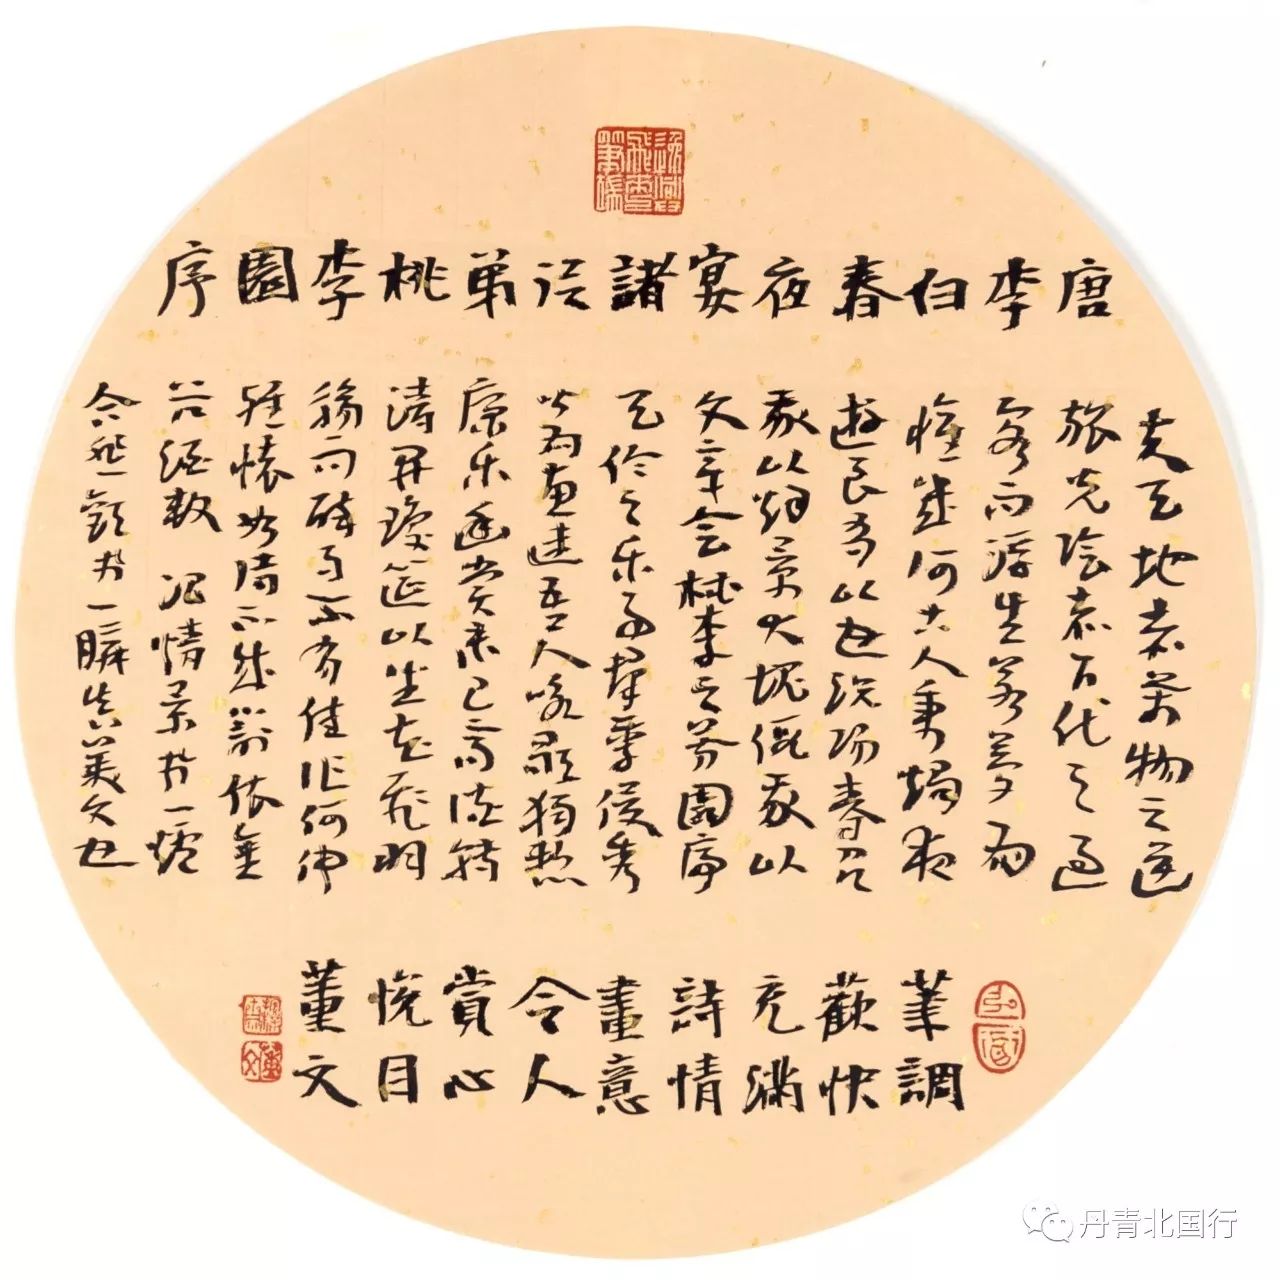 唐李白春夜宴諸從弟桃李園序
夫天地者萬物之逆
旅光陰者百代之過
客而浮生若夢為
懽幾何古人秉燭夜
遊良有以也況陽春召
我以煙景大塊假我以
文章會桃李之芳園序
天倫之樂事群季俊秀
皆為惠連吾人詠歌獨慙
康樂幽賞未已高談轉
清開瓊筵以坐花飛羽
觴而醉月不有佳作何伸
雅懷如詩不成罰依金
谷酒數 冶情景於一爐
合悲於一瞬真美文也
筆調
歡快
充滿
詩情
畫意
令人
賞心
悅目
董文
丹青北国行